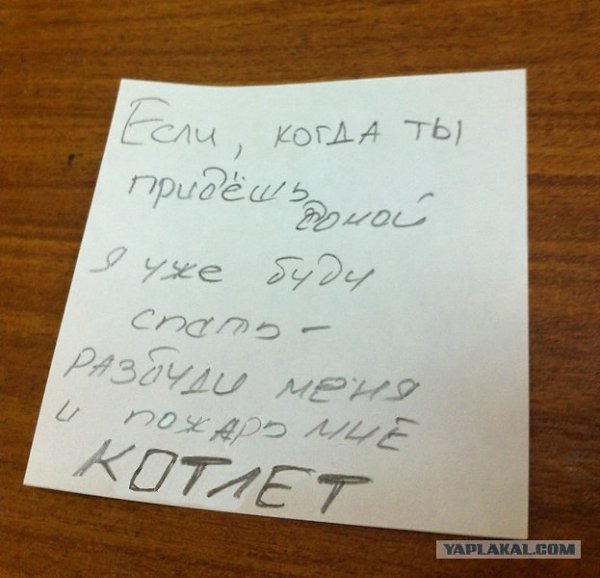 Если, когда ты
придёшь домой
я уже буду
спать –
РАЗБУДИ МЕНЯ
и пожарь МНЕ
КОТЛЕТ
YAPLAKAL.COM